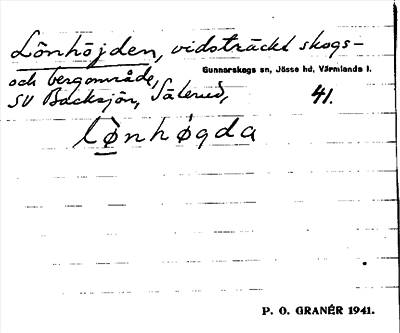 Lönhöjden, vidsträckt skogs-
och bergområde,
Gunnarskogs sn, Jösse hd, Värmlands l.
SV Backsjön, Sälerud,
41.
lònhøgda
P. O. GRANÉR 1941.